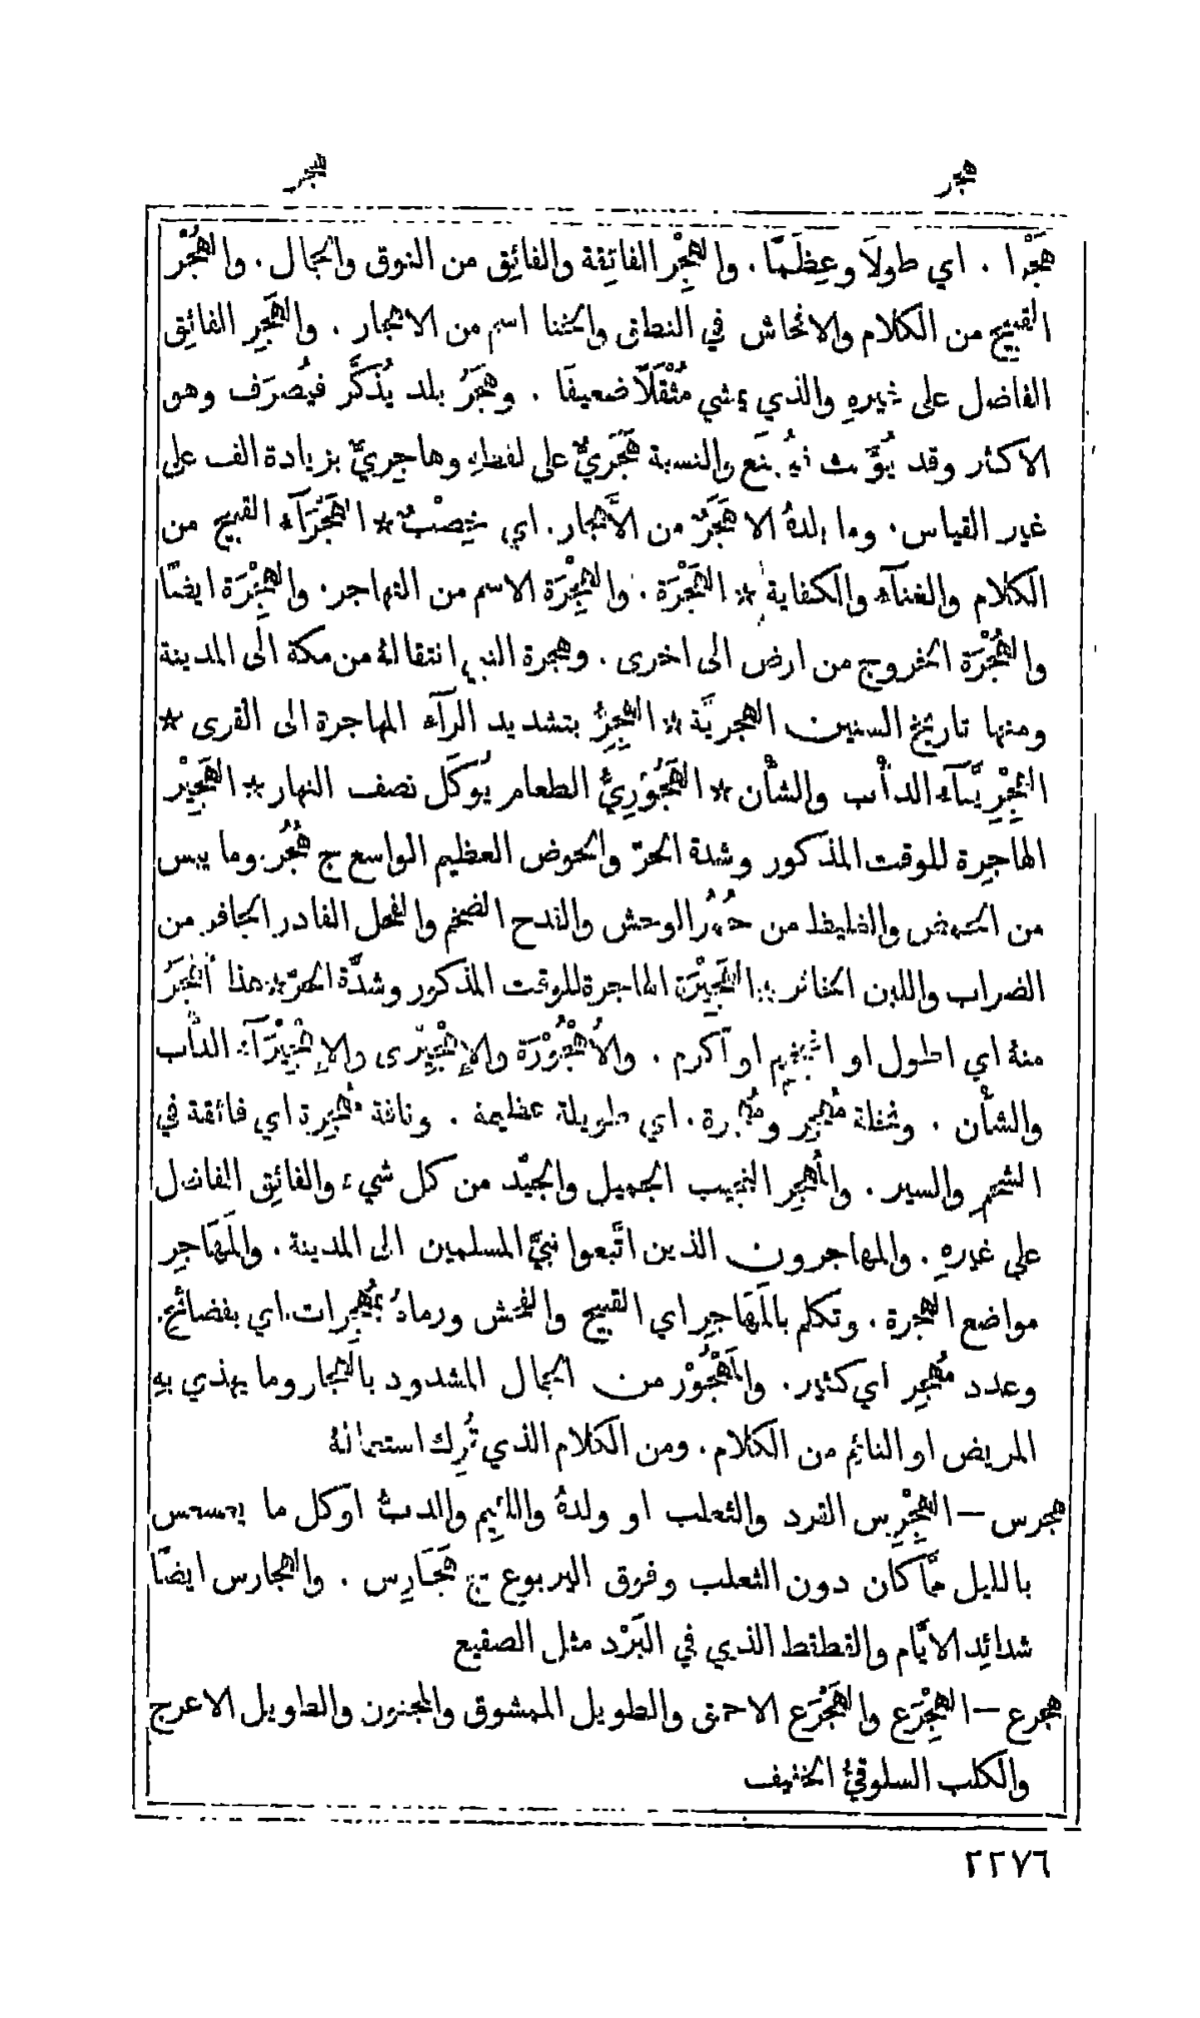 هجر هجر
هَجْرا . اي طولًا وعِظَمًا . والهِجْر الفائِقة والفائِق من النوق والجمال . والهُجْر
القبيح من الكلام والافحاش في النطق والخنا اسم من الاهجار . والهَجِر الفائق
الفاضل على غيرهِ والذي يمشي مُثْقَلًا ضعيفًا . وهَجَرُ بلد يُذَكَّر فيُصرَف وهو
الاكثر وقد يُؤنَّث فيُمنَع والنسبة هَجَريٌّ على لفظهِ وهاجِريٌّ بزيادة الف على
غير القياس . وما بلدهُ الا هَجَرٌ من الأَهجار . اي خِصْبٌ * الهَجْرَآء القبيح من
الكلام والغنآء والكفاية * الهَجْرَة . والهِجْرَة الاسم من التهاجر . والهِجْرَة ايضًا
والهُجْرَة الخروج من ارض الى اخرى . وهجرة النبي انتقالهُ من مكة الى المدينة
ومنها تاريخ السنين الهجريَّة * الهِجِرُّ بتشديد الرآء المهاجرة الى القرى *
الهِجِّرِيَّآء الدأب والشأن * الهَجُوْرِيُّ الطعام يُوكَل نصف النهار * الهَجِيْر
الهاجِرة للوقت المذكور وشدة الحرّ والحوض العظيم الواسع ج هُجُر . وما يبس
من الحمض والغليظ من حُمُر الوحش والقدح الضخم والفحل الفادر الجافر من
الضراب واللبن الخاثر * الهَجِيْرَة الهاجرة للوقت المذكور وشدَّة الحرّ * هذا أهْجَرُ
منهُ اي اطول او اضخم او اكرم . والأُهْجُوْرَة والإِهْجِيْرَى والإِهْجِيْرَآء الدأب
والشأن . ونخلة مُهْجِر ومُهجِرة . اي طويلة عظيمة . وناقة مُهْجِرة اي فائقة في
الشحم والسير . والمُهْجِر النجيب الجميل والجيّد من كل شيء والفائِق الفاضل
على غيرهِ . والمهاجرون الذين اتَّبعوا نبيَّ المسلمين الى المدينة . والمَهَاجِر
مواضع الهجرة . وتكلم بالمَهَاجِر اي القبيح والفحش ورماهُ بمُهْجِرات . اي بفضائح .
وعدد مُهْجِر اي كثير . والمَهْجُوْر من الجمال المشدود بالهجار وما يهذي بهِ
المريض او النائِم من الكلام . ومن الكلام الذي تُرِك استعمالهُ
هجرس – الهِجْرِس القرد والثعلب او ولدهُ واللئيم والدبّ او كل ما يعسعس
بالليل ممّا كان دون الثعلب وفوق اليربوع ج هَجَارِس . والهجارس ايضًا
شدائِد الايَّام والقطقط الذي في البَرْد مثل الصقيع
هجرع – الهِجْرَع والهَجْرَع الاحمق والطويل الممشوق والمجنون والطويل الاعرج
والكلب السلوقيُّ الخفيف
٢٢٧٦